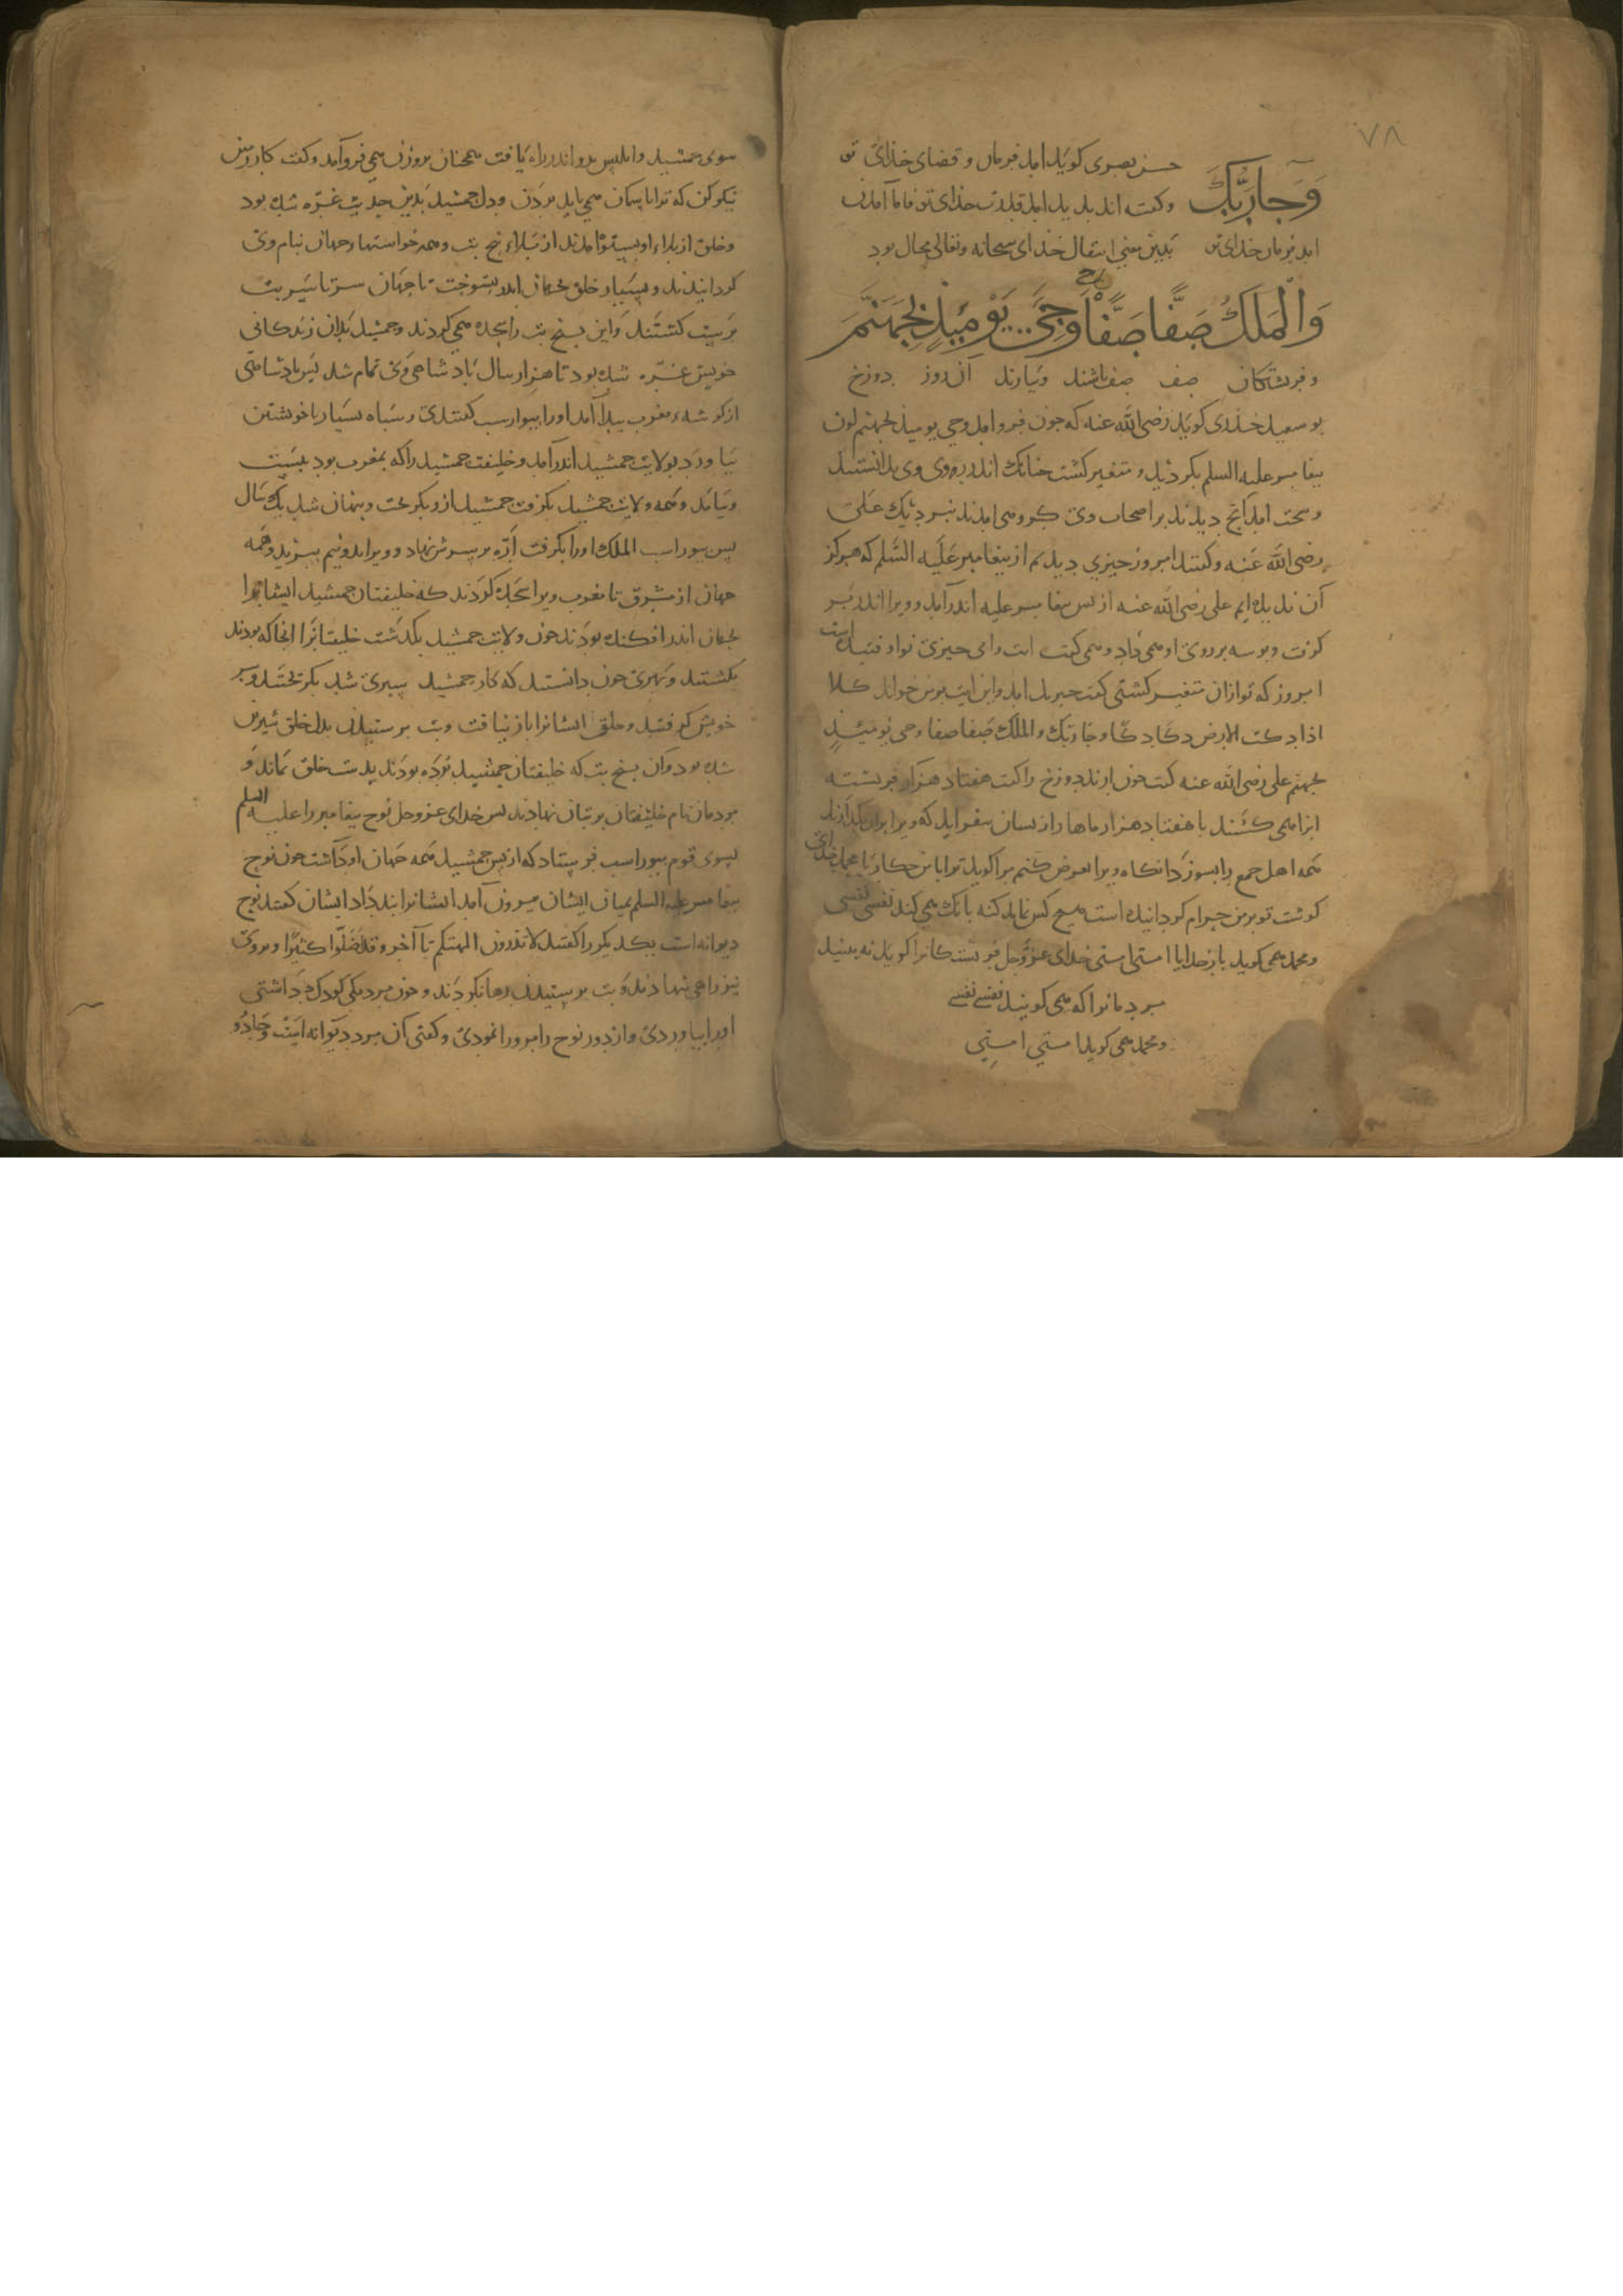 ٧٨
وَجَا رَبُّكَ حسن بصری کویَذ امذ فرمان و قضای خذای تو
وکفته اند بدید امذ قدرت خذای تو فاما آمدن
امذ فرمان خذای تو بَدین معنی انتقال خذای سبحانه وتعالی محال بود
وَالْمَلَكُ صَفًّا صَفًّا وَجِیَ یَوْمَئِذٍ بِجَهَنَّمَ
وفریشتکان صف صف باشند وبیارند آن روز دوزخ
بو سعید خذری کویَذ رضی اللّه عنه که جون فرو امذ وجی یومیذ بجهنم لون
بیغامبر علیه السلم بکردیذ و متغیر کشت جنانک اندر روی وی بدانستند
وسخت امذ آنج دیدند بر اصحاب وی کروهی امدند نزدیک علی
رضی اللّه عَنه وکفتند امروز جیزی دیدیم از بیغامبر عَلَیه السَّلم که هرکز
آن ندیده ایم علی رضی اللّه عنه از بس بیغامبر علیه اندرآمد وویرا اندر بر
کرفت وبوسه بر روی او همی داد و همی کفت ابت وامی جیزی نو اوفتیده است
امروز که تو ازان متغیر کشتی کفت جبریل امد واین ایت بر من خواند کلا
اذا دکت الارض دکّا دکّا وجا ربّک والملَک صَفا صفا وجی یومیئذٍ
بجهنم علی رضی اللّه عنه کفت جون ارند دوزخ را کفت هفتاد هزار فریشته
انرا همی کشند با هفتاد هزار ماهار از بسان
همه اهل جمع را بسوزد انکاه ویرا عرض کنم مرا کویذ ترا با من جکار یا محمد خدای
کوشت تو بر من حرام کردانیده است هیچ کس نماند که نه بانک همی کند نفسی نفسی
ومحمد همی کوید بار خدایا امتی امتی خدای عزّوجَل فریشتکانرا کویذ نه بینید
مردمانرا که همی کویند نفسی نفسی
ومحمد همی کوید امتی امتی
سوی جمشید وابلیس بدو اندر راه یافت همجنان بروزن همی فروآمد وکفت کار من
نیکو کن که ترا با سمان همی باید بردن ودل جمشید بَدین حدیث غرّه شده بود
وخلق از بلاء او بستوه امدند از بلاء بنج بت وهمه خواستهاء جهان بنام وی
کردانیدند وبسیار خلق بجهان اندر بسوخت تا جهان سر تا سر بت
برست کشتند واین بنج بت را سجده همی کردند وجمشید بدان زندکانی
خویش غرّه شده بود تا هزار سال باد شاهی وی تمام شد بس بادشاهی
از کوشهٔ مغرب بیدا آمد اورا بیوراسب کفتندی وسباه بسیار با خویشتن
بیاورد بولایت جمشید اندرآمد وخلیفت جمشید را که بمغرب بود ببست
وبیامد وهمه ولایت جمشید بکرفت جمشید ازو بکریخت وبنهان شد یک سال
بس بیوراسب الملک اورا بکرفت ارّه بر سرش نهاد وویرا بدونیم ببرید وهمه
جهان از مشرق تا مغرب ویرا سجده کردند که خلیفتان جمشید ایشانرا
بجهان اندر افکنده بودند جون ولایت جمشید بکذشت خلیفتانرا انجا که بودند
بکشتند وبهری جون دانستند که کار جمشید سبری شد بکریختند وسر
خویش کرفتند وخلق ایشانرا باز نیافت وبت برستیدن بدل خلق شیرین
شده بود وآن بنج بت که خلیفتان جمشید بوده بودند بدست خلق بماند و
مردمان نام خلیفتان بر بتان نهادند بس خدای عزوجل نوح بیغامبر را علیه السلم
بسوی قوم بیوراسب فرستاد که از بس جمشید همه جهان او داشت جون نوح
بیغامبر علیه السلم بمیان ایشان بیرون آمد ایشانرا بند داد ایشان کفتند نوح
دیوانه است یکدیکر را کفتند لا تذرون الهتکم تا آخر وقد اضلّوا کثیرًا وبروی
نیز راهی نهادند وبت برستیدن رها نکردند وجون مردیکی کودک داشتی
اورا بیاوردی واز دور نوح را مرورا نمودی وکفتی آن مرد دیوانه است وجادُو